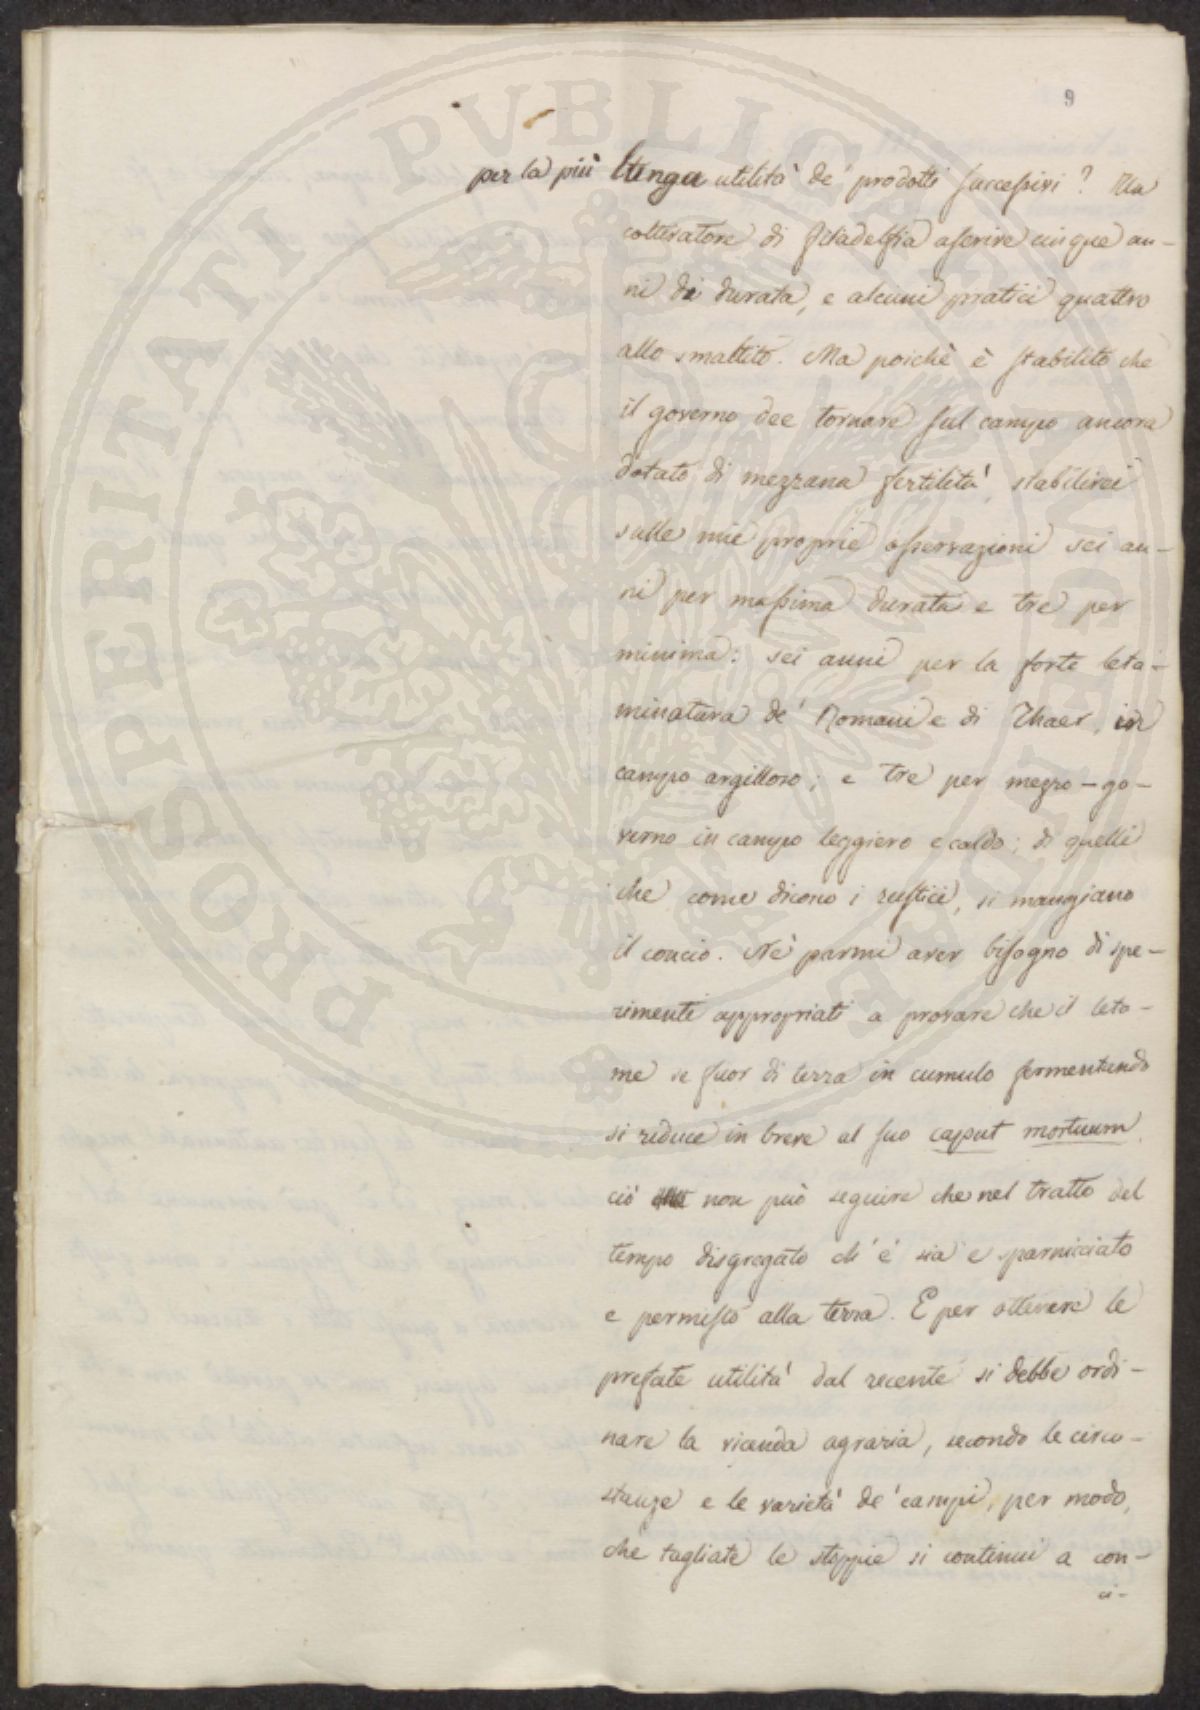 9
per la più lunga utilità de' prodotti successivi? Un
coltivatore di Filadelfia ascrive cinque an-
ni di durata, e alcuni pratici quattro
allo smaltito. Ma poichè è stabilito che
il governo dee tornare sul campo ancora
dotato di mezzana fertilità, stabilirei
sulle mie proprie osservazioni sei an-
ni per massima durata e tre per
minima: sei anni per la forte leta-
minatura de' Romani e di Thaer, in
campo argilloso; e tre per mezzo-go-
verno in campo leggiero e caldo; di quelli
che come dicono i rustici, si mangiano
il concio. Nè parmi aver bisogno di spe-
rimenti appropriati a provare che il leta-
me se fuor di terra in cumulo fermentando
si riduce in breve al suo caput mortuum,
ciò non può seguire che nel tratto del
tempo disgregato ch'è sia e sparnicciato
e permisto alla terra. E per ottenere le
prefate utilità dal recente si debbe ordi-
nare la vicenda agraria, secondo le circo-
stanze e le varietà de' campi, per modo,
che tagliate le stoppie si continui a con-
ci-
PROSPERITATI PUBLICAE AUGENDAE